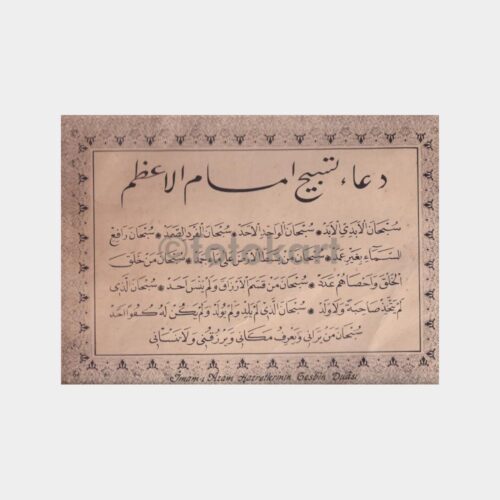 دعاء تسبيح امام الاعظم
سُبْحَانَ الْاَبَدِيِّ الْاَبَدِ * سُبْحَانَ الْوَاحِدِ الْاَحَدِ * سُبْحَانَ الْفَرْدِ الصَّمَدِ * سُبْحَانَ رَافِعِ
السَّمَاءِ بِغَيْرِ عَمَدٍ * سُبْحَانَ مَنْ خَلَقَ
الْخَلْقَ وَاَحْصَاهُمْ عَدَدًا * سُبْحَانَ مَنْ قَسَمَ الْاَرْزَاقَ وَلَمْ يَنْسَ اَحَدٌ * سُبْحَانَ الَّذِي
لَمْ يَتَّخِذْ صَاحِبَةً وَلَا وَلَدًا * سُبْحَانَ الَّذِي لَمْ يَلِدْ وَلَمْ يُولَدْ وَلَمْ يَكُنْ لَهُ كُفُوًا اَحَدٌ
سُبْحَانَ مَنْ يَرَانِي وَيَعْرِفُ مَكَانِي وَيَرْزُقُنِي وَلَا يَنْسَانِي
İmam-ı Azam Hazretlerinin Tesbih Duâsı
©fotokart